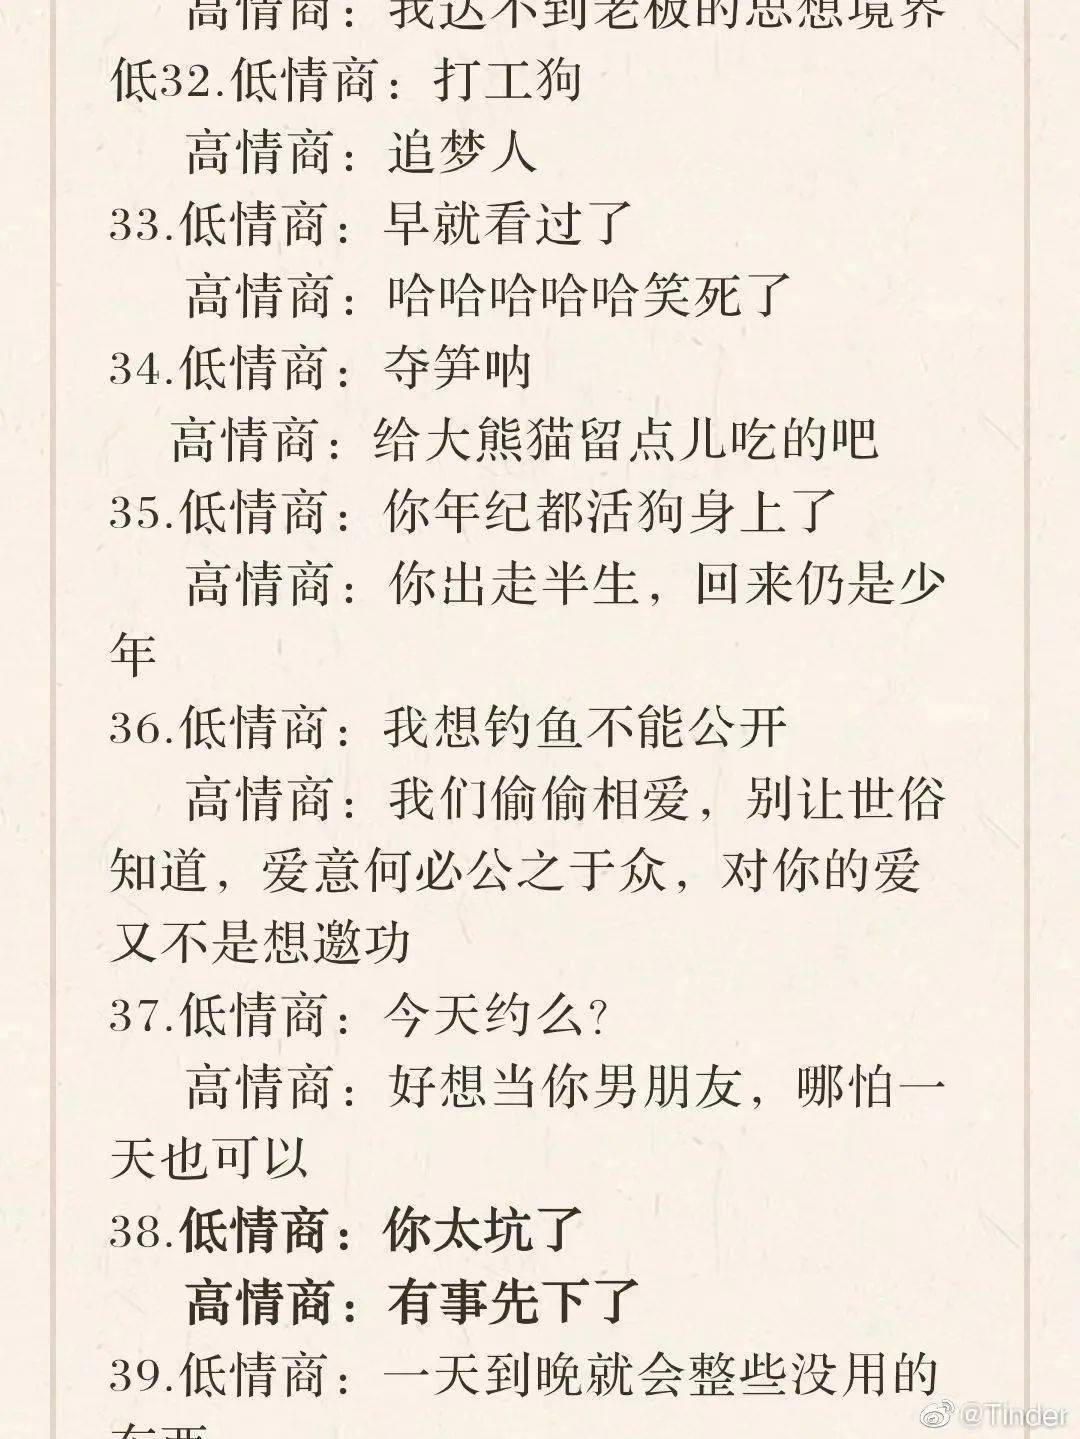 高情商：我达不到老板的思想境界
低32.低情商：打工狗
高情商：追梦人
33.低情商：早就看过了
高情商：哈哈哈哈哈笑死了
34.低情商：夺笋呐
高情商：给大熊猫留点儿吃的吧
35.低情商：你年纪都活狗身上了
高情商：你出走半生，回来仍是少
年
36.低情商：我想钓鱼不能公开
高情商：我们偷偷相爱，别让世俗
知道，爱意何必公之于众，对你的爱
又不是想邀功
37.低情商：今天约么?
高情商：好想当你男朋友，哪怕一
天也可以
38.低情商：你太坑了
高情商：有事先下了
39.低情商：一天到晚就会整些没用的
东西
@Tinder